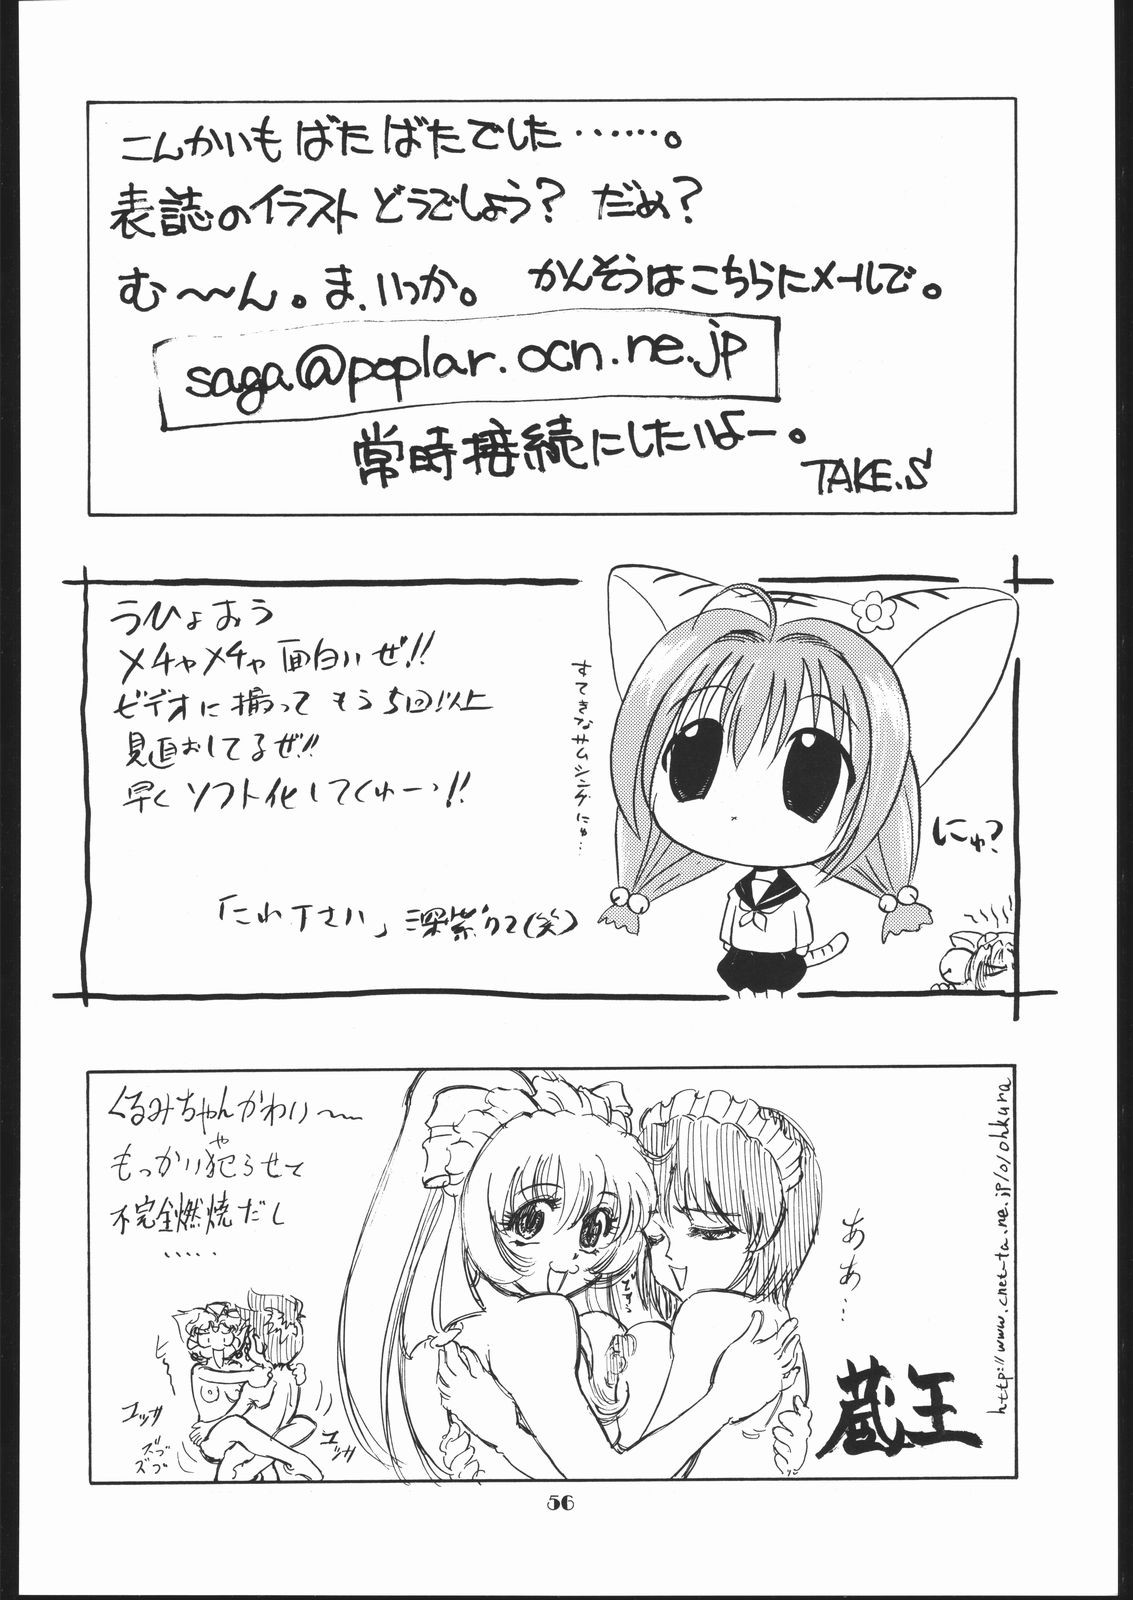 こんかいもばたばたでした……。
表誌のイラストどうでしょう? だめ?
む〜〜ん。ま、いっか。 かんそうはこちらにメールで。
saga@poplar.ocn.ne.jp
常時接続にしたいよー。
TAKE.S
うひょおう
メチャメチャ面白いぜ!!
ビデオに撮ってもう5回以上
見直おしてるぜ!!
早くソフト化してくりゅーっ!!
すてきなサムシングにゅ…
にゅ?
くるみちゃんかわい〜〜
もっかい犯らせて
や
不完全燃焼だし
.....
ああ…
蔵王
http://www.cnet-ta.ne.jp/o/ohkura
ユッサ
ユッサ
ズブ
ズブ
56